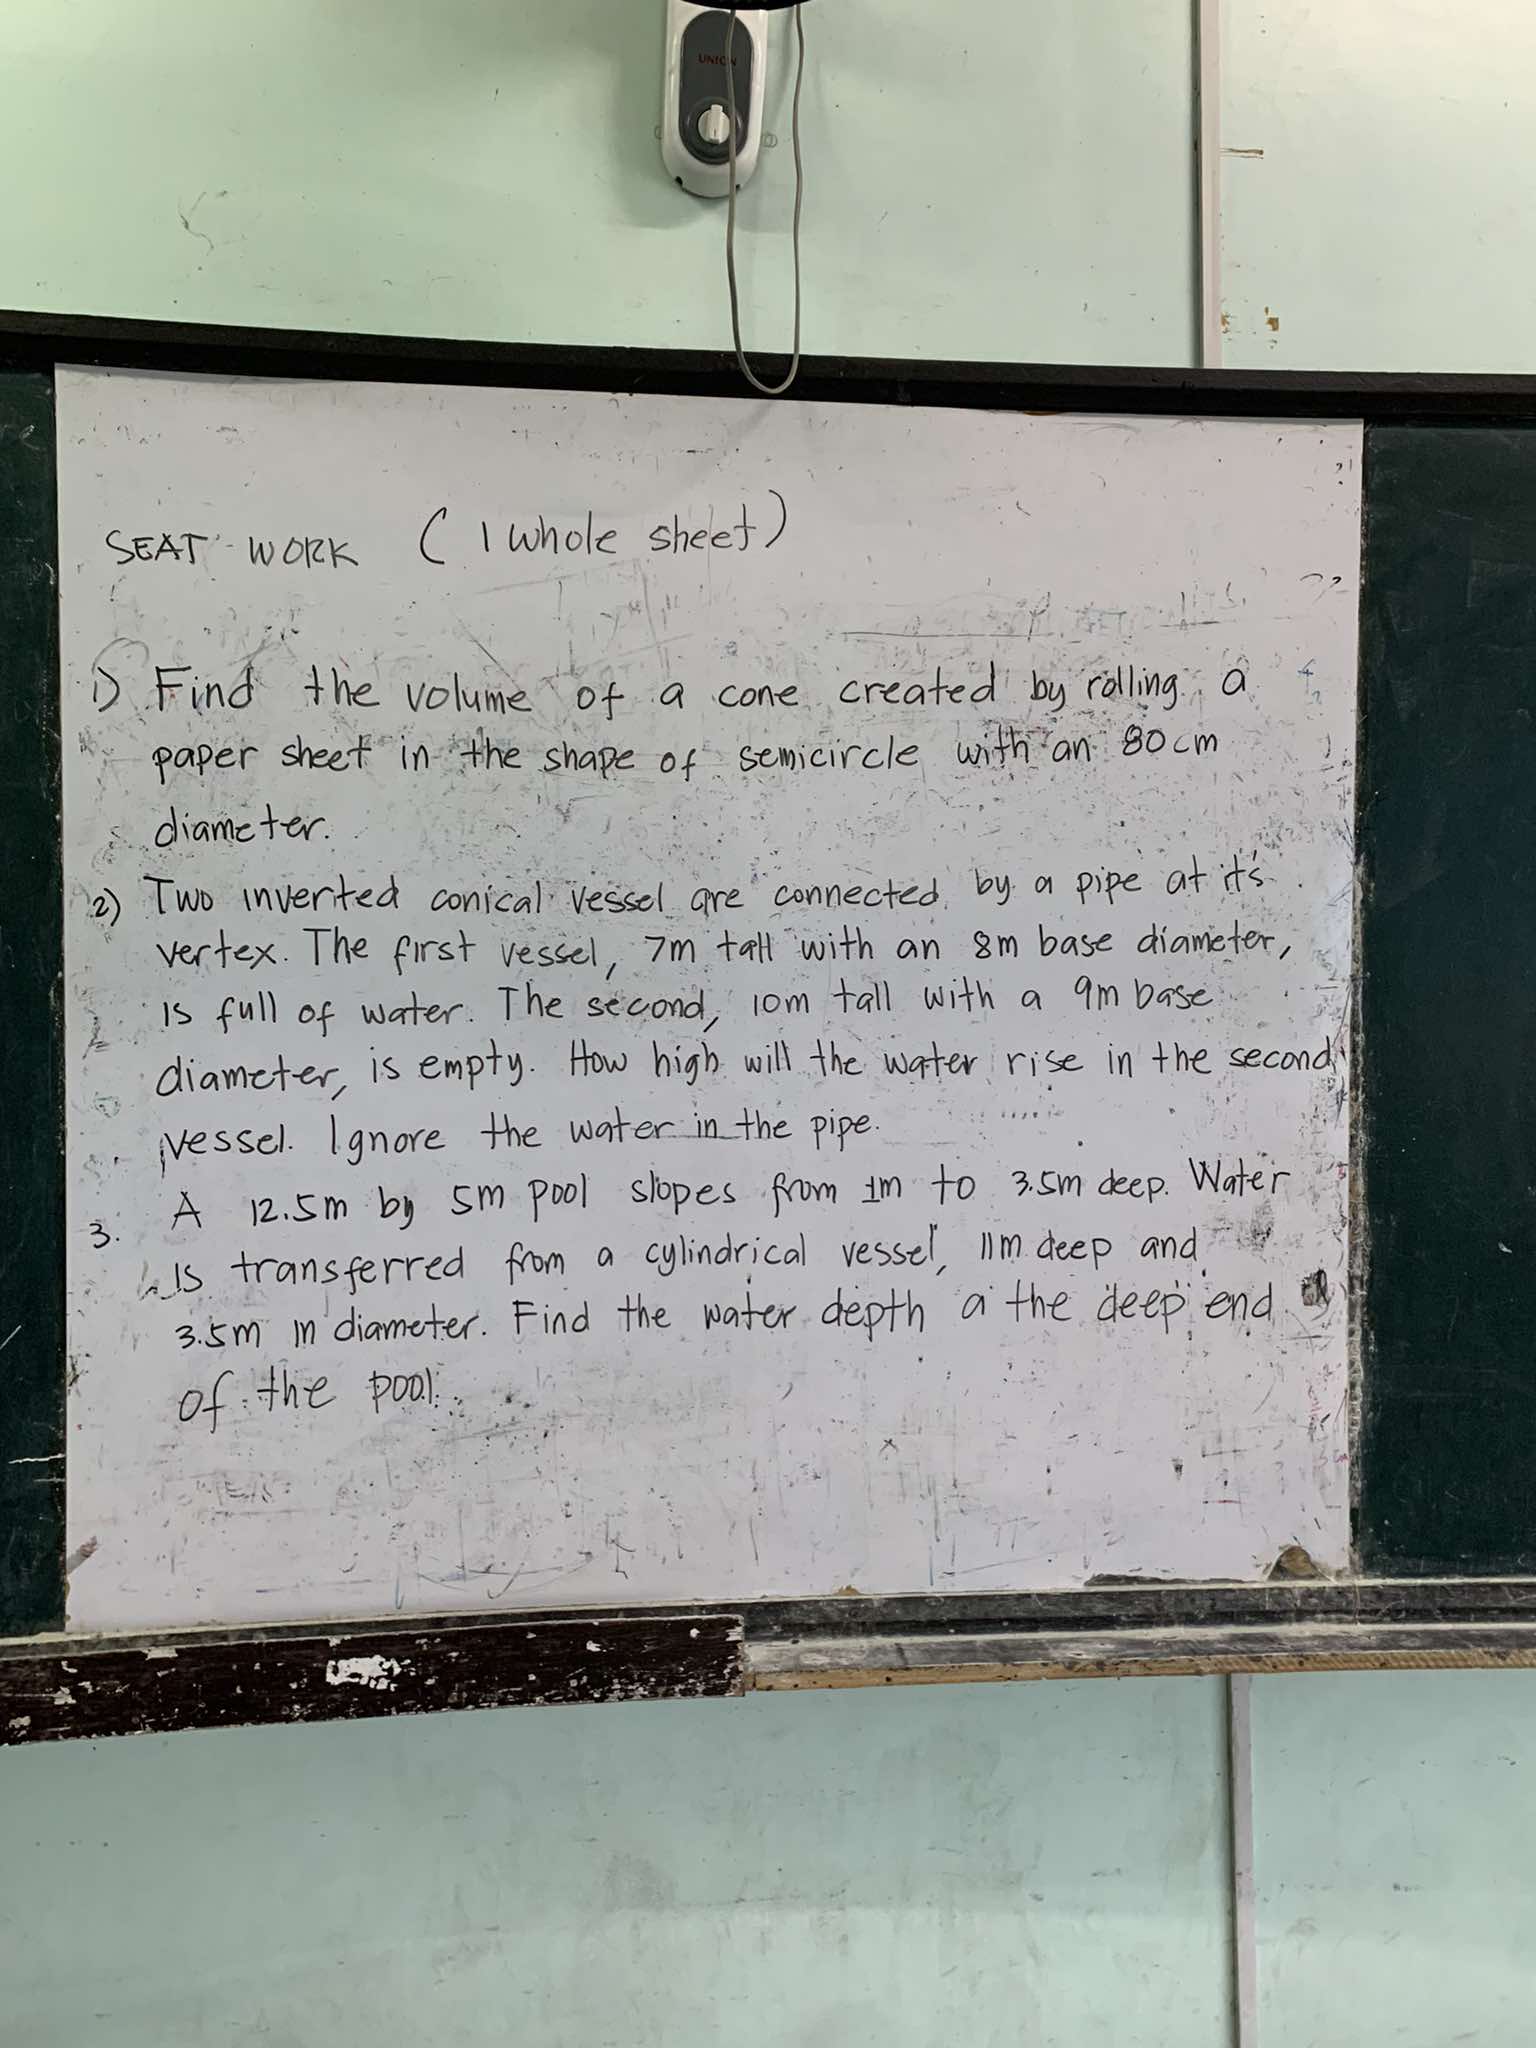 UNION
SEAT-WORK (1 whole sheet)
1) Find the volume of a cone created by rolling a
paper sheet in the shape of semicircle with an 80cm
diameter.
2) Two inverted conical vessel are connected by a pipe at it's
vertex. The first vessel, 7m tall with an 8m base diameter,
is full of water. The second, 10m tall with a 9m base
diameter, is empty. How high will the water rise in the second
vessel. Ignore the water in the pipe.
3. A 12.5m by 5m pool slopes from 1m to 3.5m deep. Water
is transferred from a cylindrical vessel, 11m deep and
3.5m in diameter. Find the water depth a the deep end
of the pool.